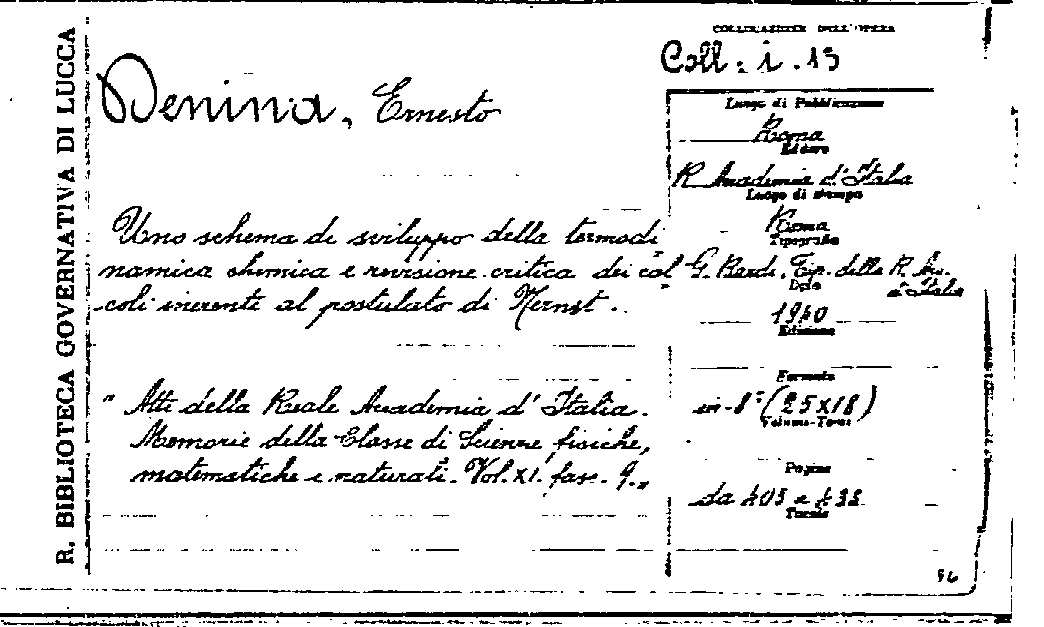 R. BIBLIOTECA GOVERNATIVA DI LUCCA
COLLOCAZIONE DELL'OPERA
Coll: i. 13
Denina, Ernesto
Uno schema di sviluppo della termodi
namica chimica e revisione critica dei cal
coli inerenti al postulato di Nernst.
" Atti della Reale Accademia d'Italia.
Memorie della Classe di Scienze fisiche,
matematiche e naturali. Vol. XI. fasc. 9."
Luogo di Pubblicazione
Roma
Editore
R. Accademia d'Italia
Luogo di stampa
Roma
Tipografia
G. Bardi, Tip. della R. Ac.
d'Italia
Data
1940
Edizione
Formato
in-8° (25x18)
Volume-Tomo
Pagine
da 403 a 438
Tavole